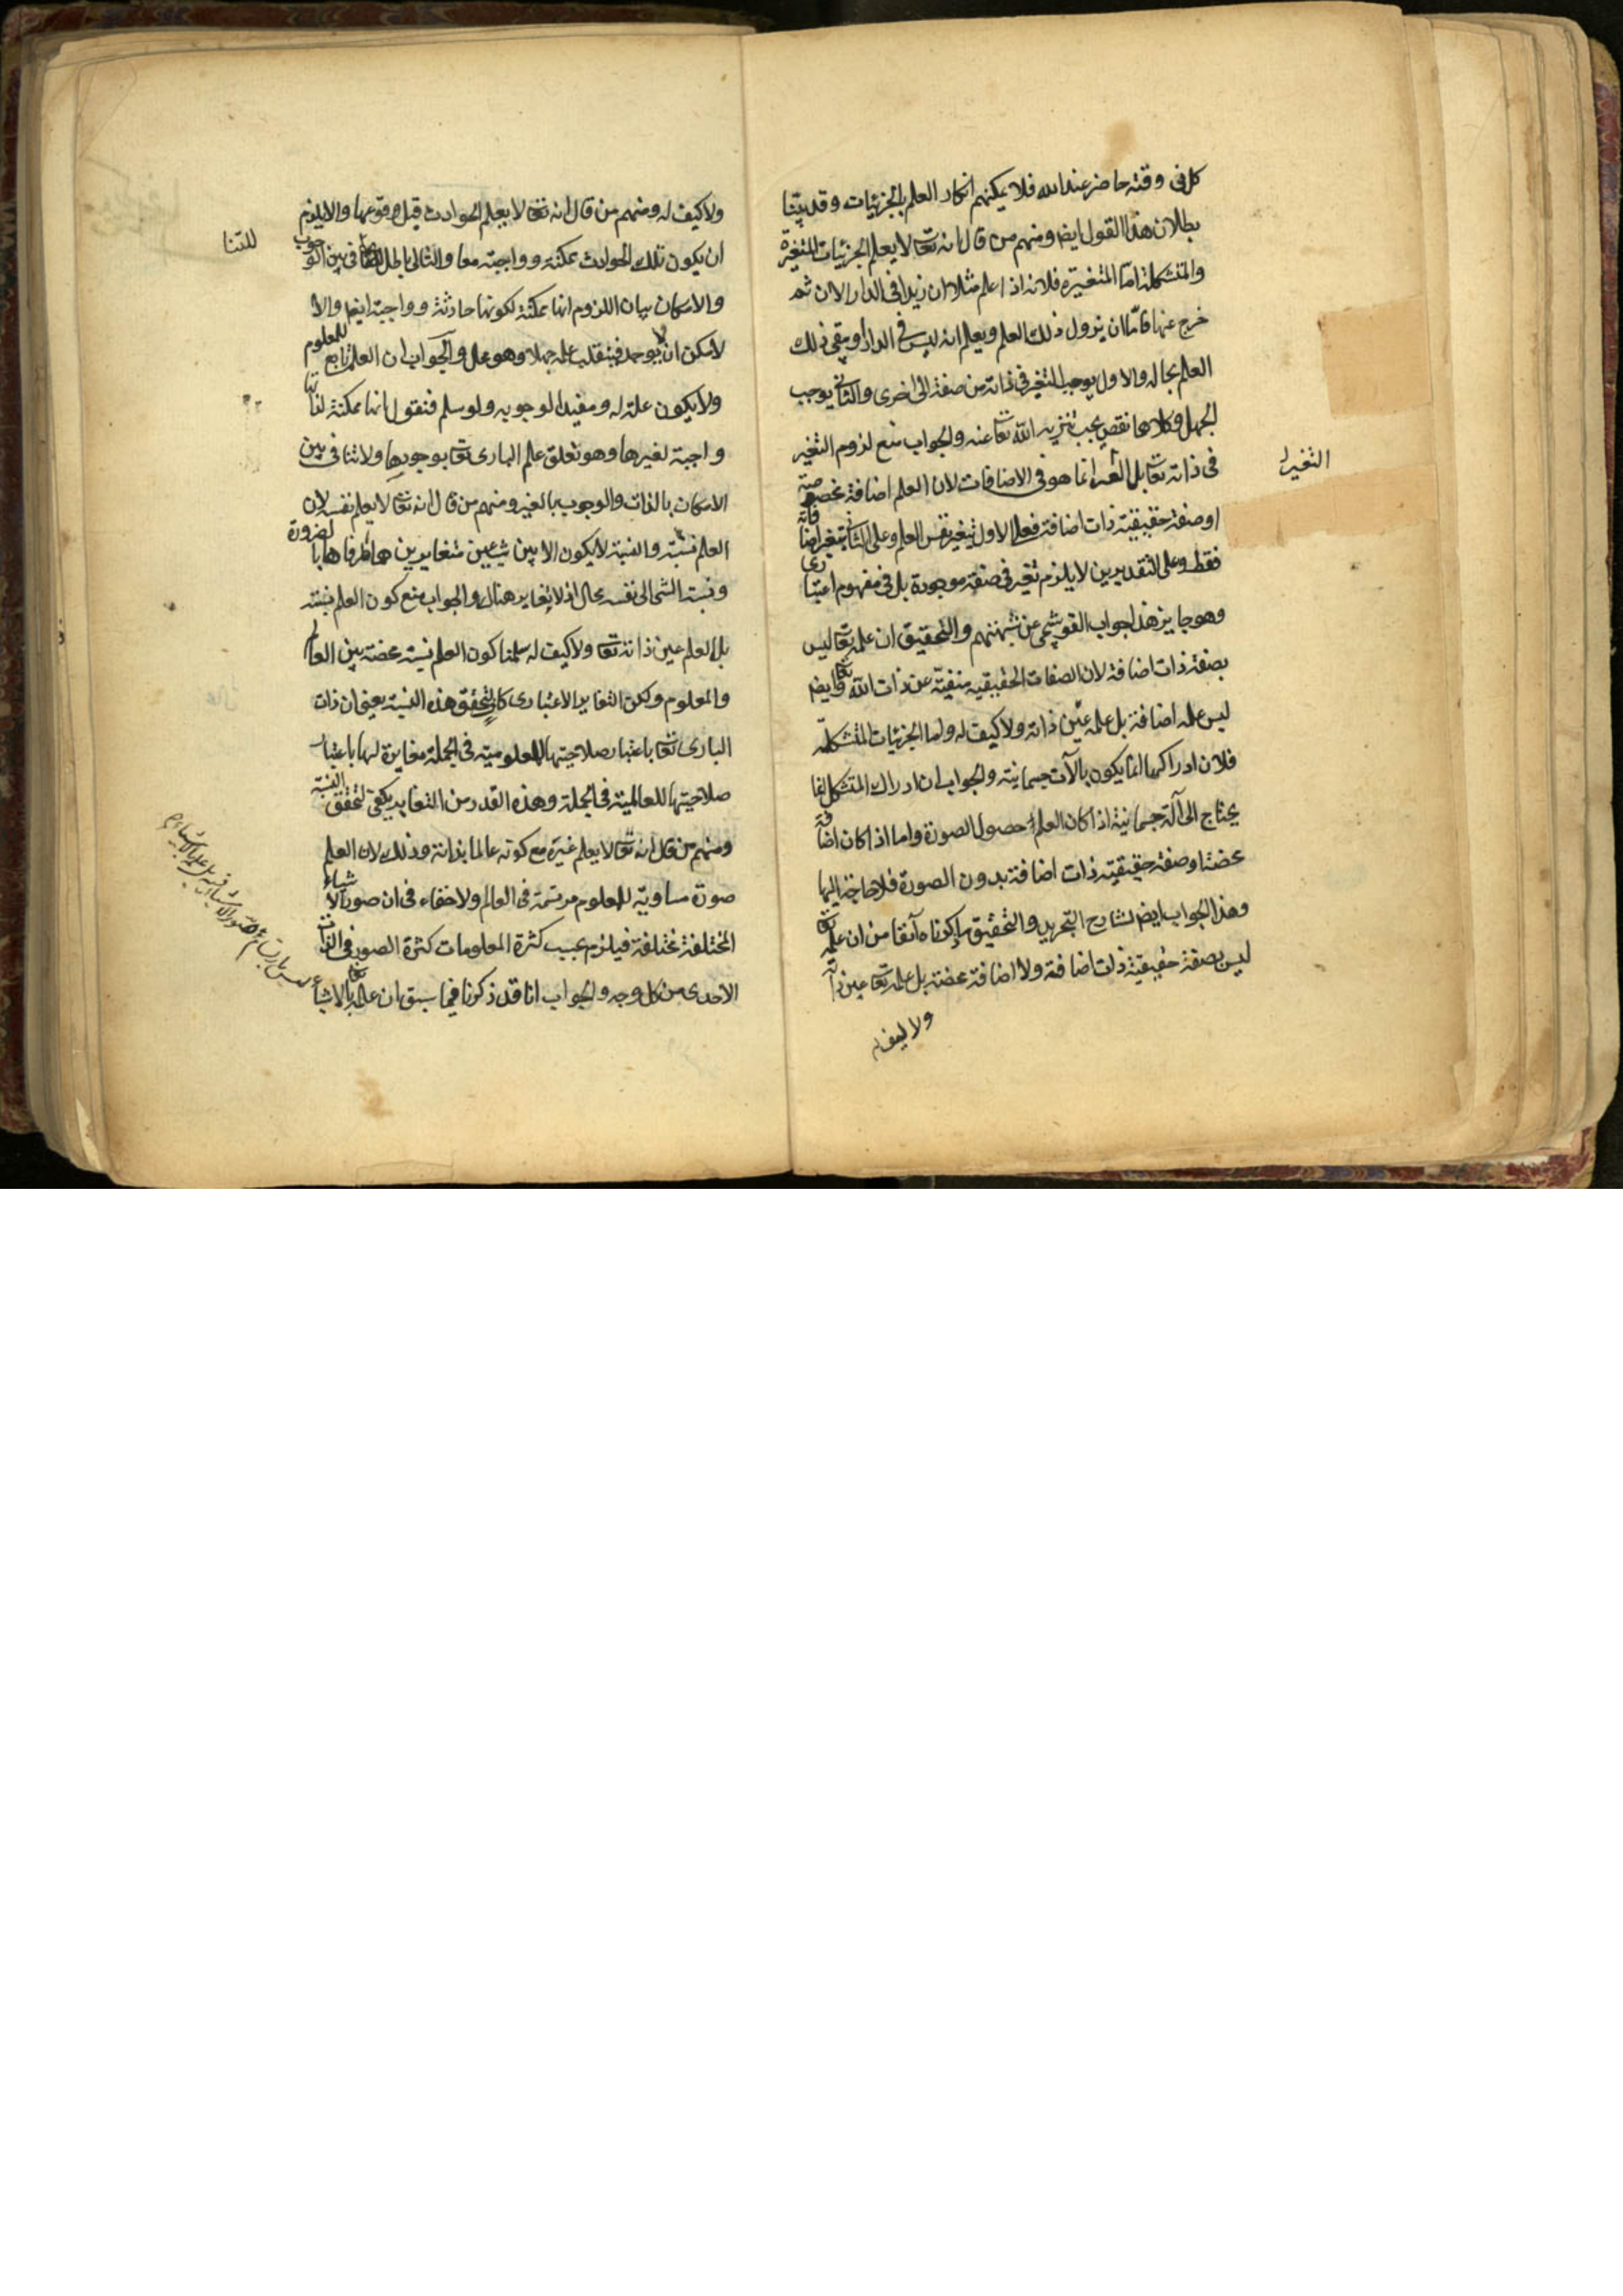 كل فى وقته حاضر عند الله فلا يمكنهم انكار العلم بالجزئيات وقد بيّنا
بطلان هذا القول ايضا ومنهم من قال انه تعا لا يعلم الجزئيات المتغيرة
والمتشكلة امّا المتغيرة فلانه اذا علم مثلا ان زيدا فى الدار الان ثم
خرج عنها فامّا ان يزول ذلك العلم ويعلم انه ليس فى الدار او يبقى ذلك
العلم بحاله والاول يوجب التغير فى ذاته من صفة الى اخرى والثانى يوجب
الجهل وكلاهما نقص يجب تنزيه الله تعا عنه والجواب منع لزوم التغير
فى ذاته تعا بل انما هو فى الاضافات لان العلم اضافة مخصوصة
التغير
او صفة حقيقية ذات اضافة فعلى الاول يتغير نفس العلم وعلى الثانى يتغير اضافاته
فقط وعلى التقديرين لا يلزم تغير فى صفة موجودة بل فى مفهوم اعتبارى
وهو جايز هذا جواب القوشجى عن شبهتهم والتحقيق ان علمه تعا ليس
بصفة ذات اضافة لان الصفات الحقيقيه منفيّة عن ذات الله تعا وايضا
ليس علمه اضافة بل علمه عين ذاته ولا كيف له واما الجزئيات المتشكلة
فلان ادراكها انما يكون بالآت جسمانية والجواب ان ادراك المتشكل انما
يحتاج الى آلة جسمانية اذا كان العلم حصول الصورة واما اذا كان اضافة
محضة او صفة حقيقية ذات اضافة بدون الصورة فلا حاجة اليها
وهذا الجواب ايضا لشارح التجريد والتحقيق ما ذكرناه آنفا من ان علمه تعا
ليس بصفة حقيقية ذات اضافة ولا اضافة محضة بل علمه تعا عين ذاته
ولا كيف له
ولا كيف له ومنهم من قال انه تعا لا يعلم الحوادث قبل وقوعها والا يلزم
ان يكون تلك الحوادث ممكنة وواجبة معا والتالى باطل للتنافى بين الوجوب
للتنا
والامكان بيان اللزوم انها ممكنة لكونها حادثة وواجبة ايضا والا
لامكن ان لا يوجد فينقلب علمه جهلا وهو محال والجواب ان العلم تابع للمعلوم
ولا يكون علة له ومفيدا لوجوبه ولو سلم فنقول انها ممكنة لذاتها
واجبة لغيرها وهو تعلق علم البارى تعا بوجودها ولا تنافى بين
الامكان بالذات والوجوب بالغير ومنهم من قال انه تعا لا يعلم نفسه لان
العلم نسبة والنسبة لا يكون الا بين شيئين متغايرين هما طرفاها بالضرورة
ونسبة الشئ الى نفسه محال اذ لا تغاير هناك والجواب منع كون العلم نسبة
بل العلم عين ذاته تعا ولا كيف له سلمنا كون العلم نسبة محضة بين العالم
والمعلوم ولكن التغاير الاعتبارى كاف لتحقق هذه النسبة يعنى ان ذات
البارى تعا باعتبار صلاحيتها للمعلومية فى الجملة مغايرة لها باعتبار
صلاحيتها للعالمية فى الجملة وهذه القدر من التغاير يكفى لتحقق النسبة
ومنهم من قال انه تعا لا يعلم غيره مع كونه عالما بذاته وذلك لان العلم
صورة مساوية للمعلوم مرتسمة فى العالم ولا خفاء فى ان صور الاشياء
المختلفة مختلفة فيلزم بحسب كثرة المعلومات كثرة الصور فى الذات
الاحدى من كل وجه والجواب انا قد ذكرنا فيما سبق ان علمه تعا بالاشياء
ليس بارتسام صور الاشياء فيه بل علمه بالاشياء